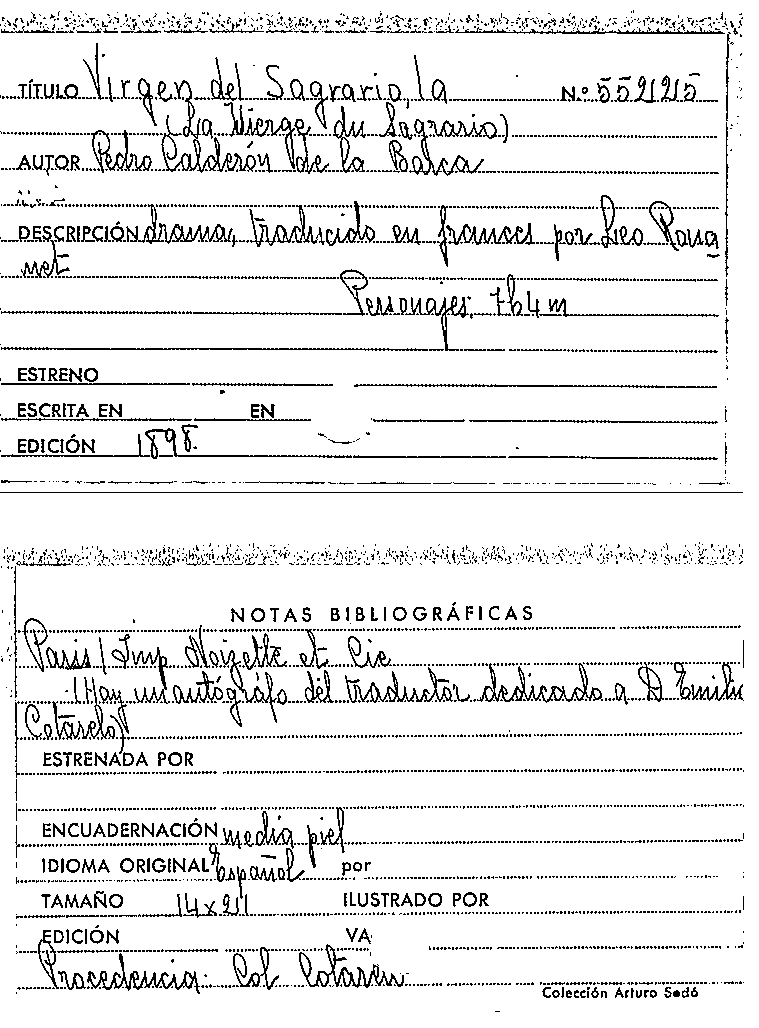 TÍTULO Virgen del Sagrario, la N.º 55212/5
(La Vierge du Sagrario)
AUTOR Pedro Calderón de la Barca
DESCRIPCIÓN drama, traducido en frances por Leo Roua
net
Personajes: 7h4m
ESTRENO
ESCRITA EN EN
EDICIÓN 1898.
NOTAS BIBLIOGRÁFICAS
Paris / Imp Noizette et Cie
(Hay un autógrafo del traductor dedicado a D Emilio
Cotarelo)
ESTRENADA POR
ENCUADERNACIÓN media piel
IDIOMA ORIGINAL Español por
TAMAÑO 14x21 ILUSTRADO POR
EDICIÓN VA
Procedencia: Col
Colección Arturo Sedó